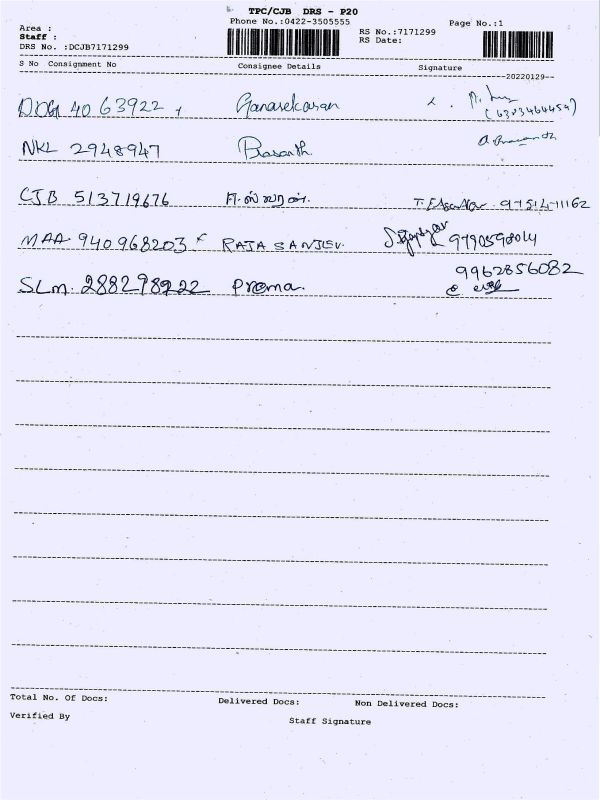 TPC/CJB DRS - P20
Phone No.:0422-3505555
Page No.:1
Area :
Staff :
DRS No. :DCJB7171299
RS No.:7171299
RS Date:
S No Consignment No Consignee Details Signature
20220129
4063922 Ganasekaran
NKL 2948947 Prasanth
CJB 513719676 ஈஸ்வரன்.
MAA 940968203 RAJA SANJEV.
9962856082
SLM. 288298922 Prema.
Total No. Of Docs: Delivered Docs: Non Delivered Docs:
Verified By Staff Signature